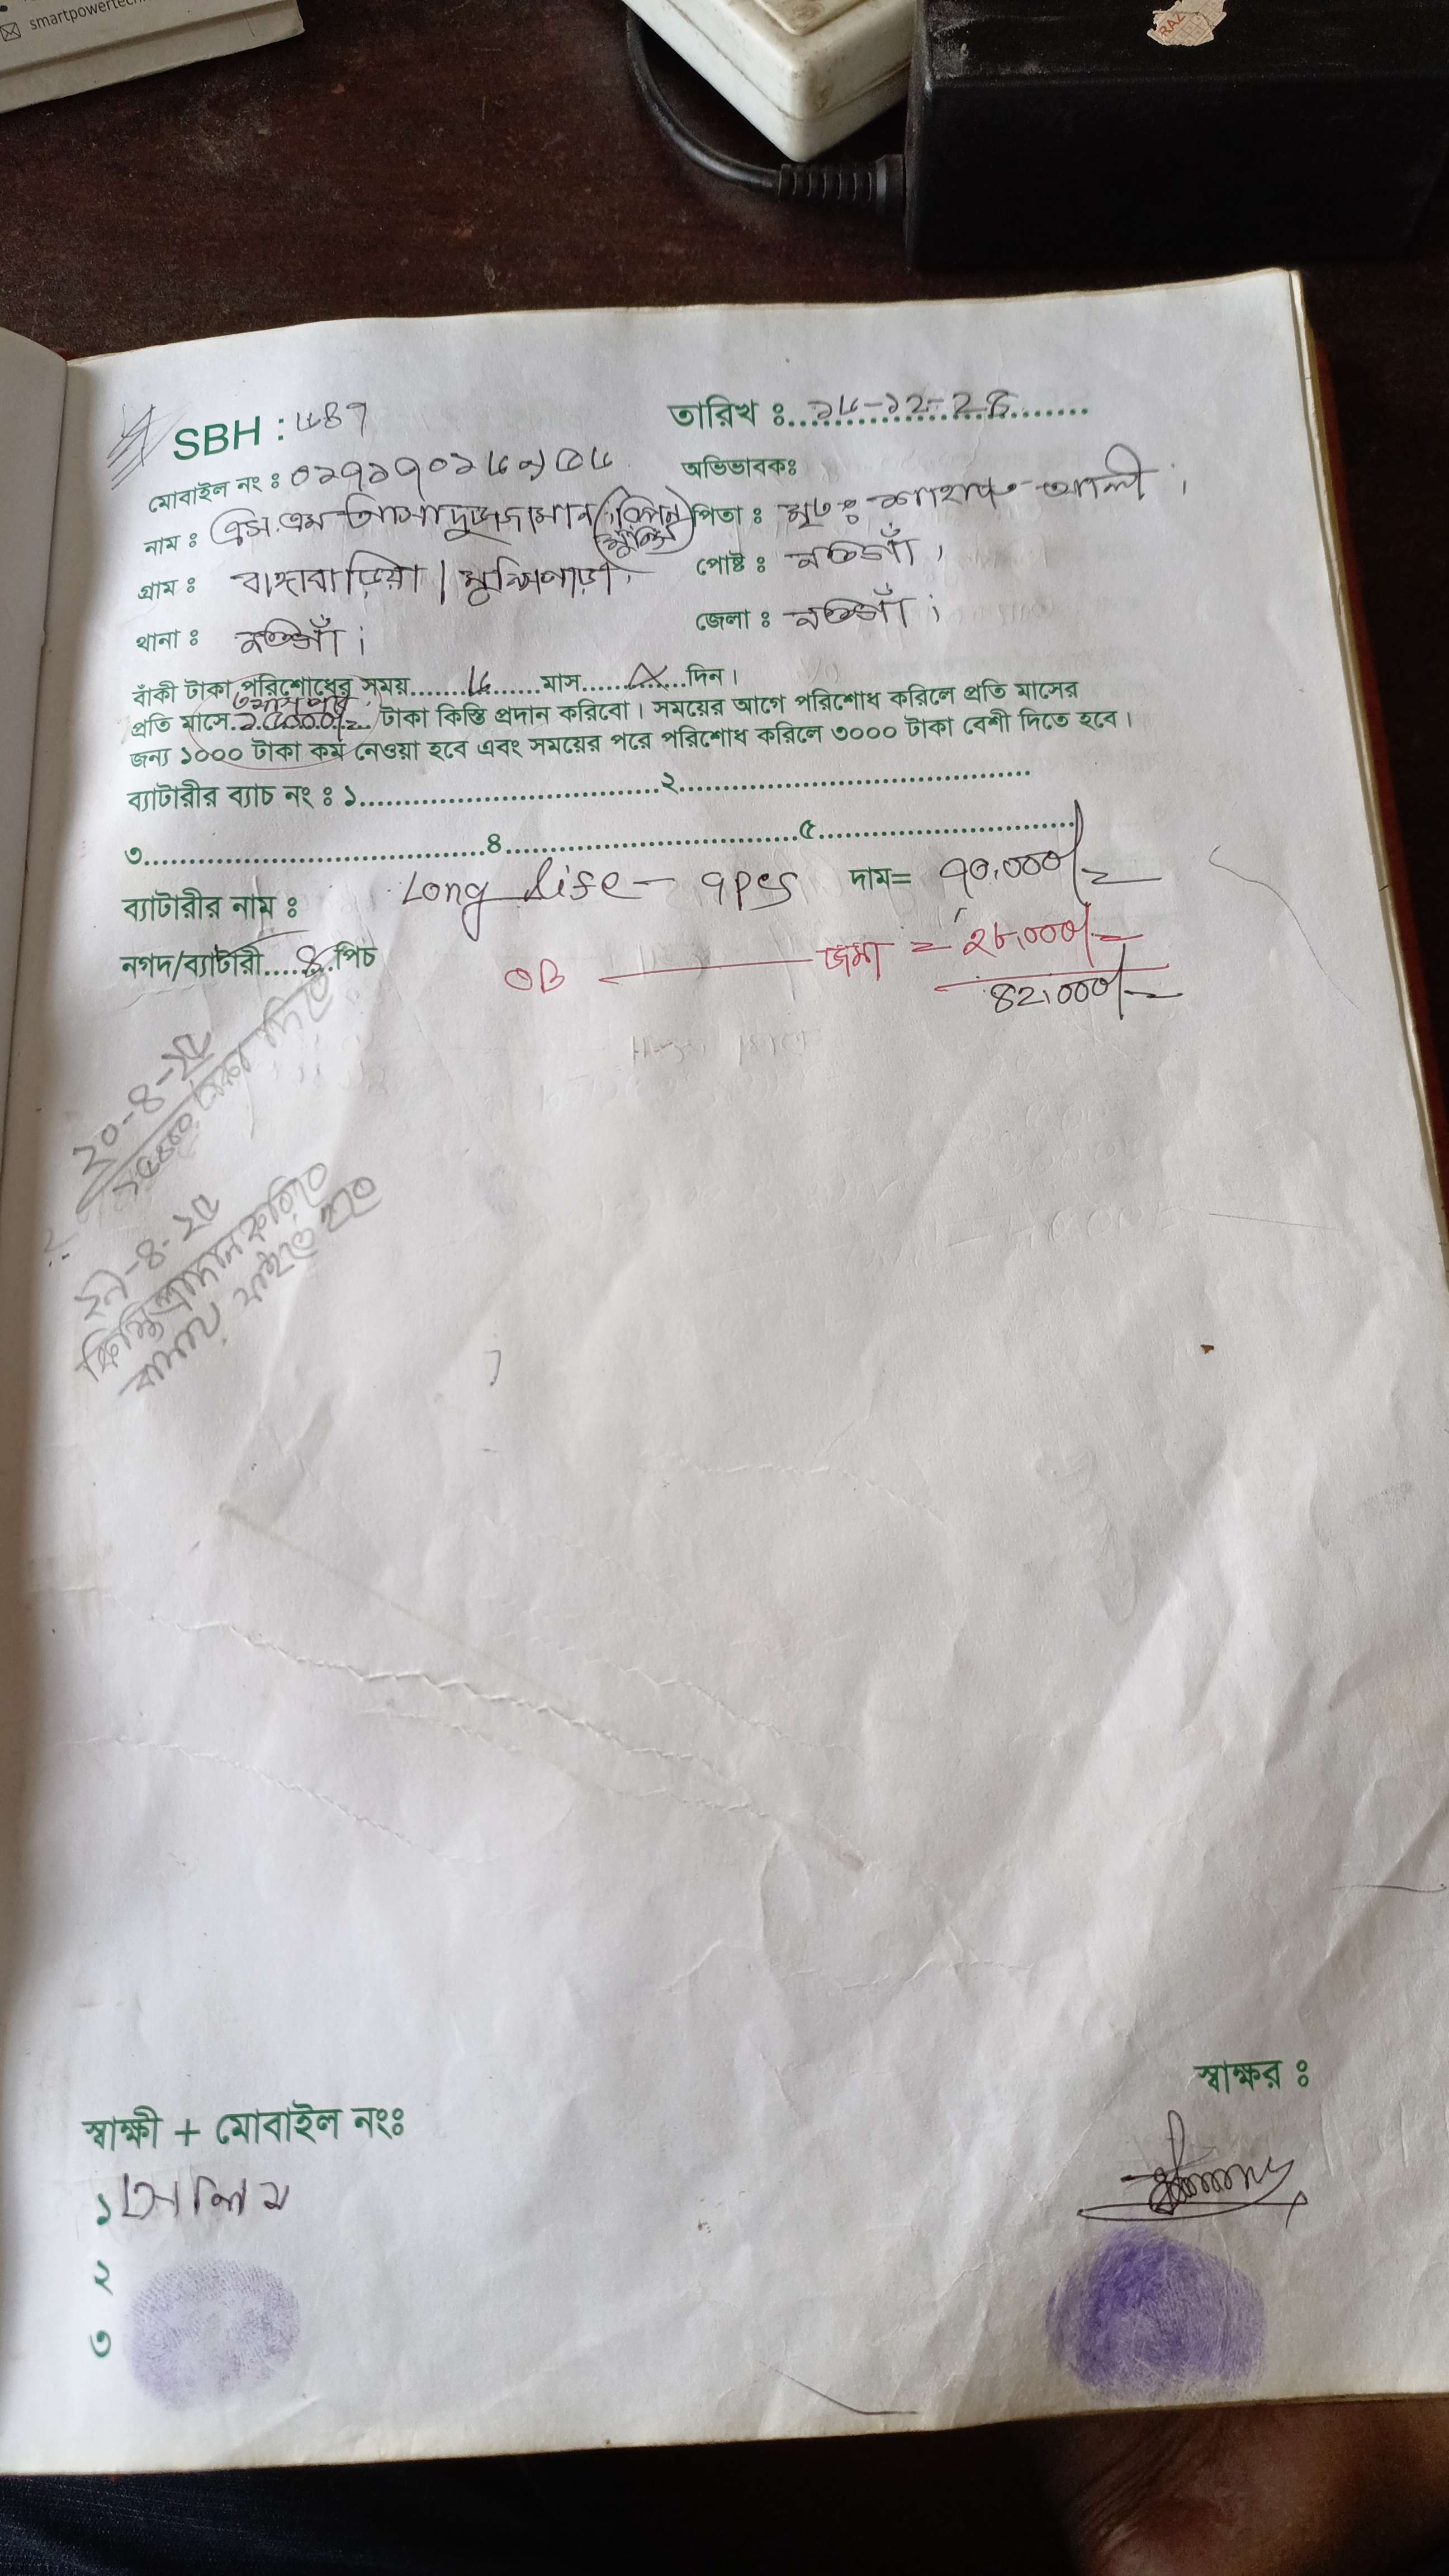 smartpowertech
SBH : ৬৪৭
তারিখ ঃ ১৬-১২-২৪
মোবাইল নং ঃ
অভিভাবকঃ
নাম ঃ এস.এম আসাদুজ্জামান (রিপন মুন্সি)
পিতা ঃ মৃতঃ আলী।
গ্রাম ঃ বাঙ্গাবাড়িয়া। মুন্সিপাড়া।
পোষ্ট ঃ নওগাঁ।
থানা ঃ নওগাঁ।
জেলা ঃ নওগাঁ।
বাঁকী টাকা পরিশোধের সময়.......৬.......মাস......X......দিন।
প্রতি মাসে টাকা কিস্তি প্রদান করিবো। সময়ের আগে পরিশোধ করিলে প্রতি মাসের
জন্য ১০০০ টাকা কম নেওয়া হবে এবং সময়ের পরে পরিশোধ করিলে ৩০০০ টাকা বেশী দিতে হবে।
ব্যাটারীর ব্যাচ নং ঃ ১..........২..........
৩..........৪..........৫..........
ব্যাটারীর নাম ঃ Long life – ৭pcs দাম= ৭০,০০০/=
নগদ/ব্যাটারী....৪.পিচ OB জমা = ২৮,০০০/=
৪২,০০০/=
২০-৪-২৫
টাকা দিবে
২৭-৪-২৫
কিস্তি প্রদান করিবে
বাসায় যাইতে হবে
স্বাক্ষর ঃ
স্বাক্ষী + মোবাইল নংঃ
১
২
৩